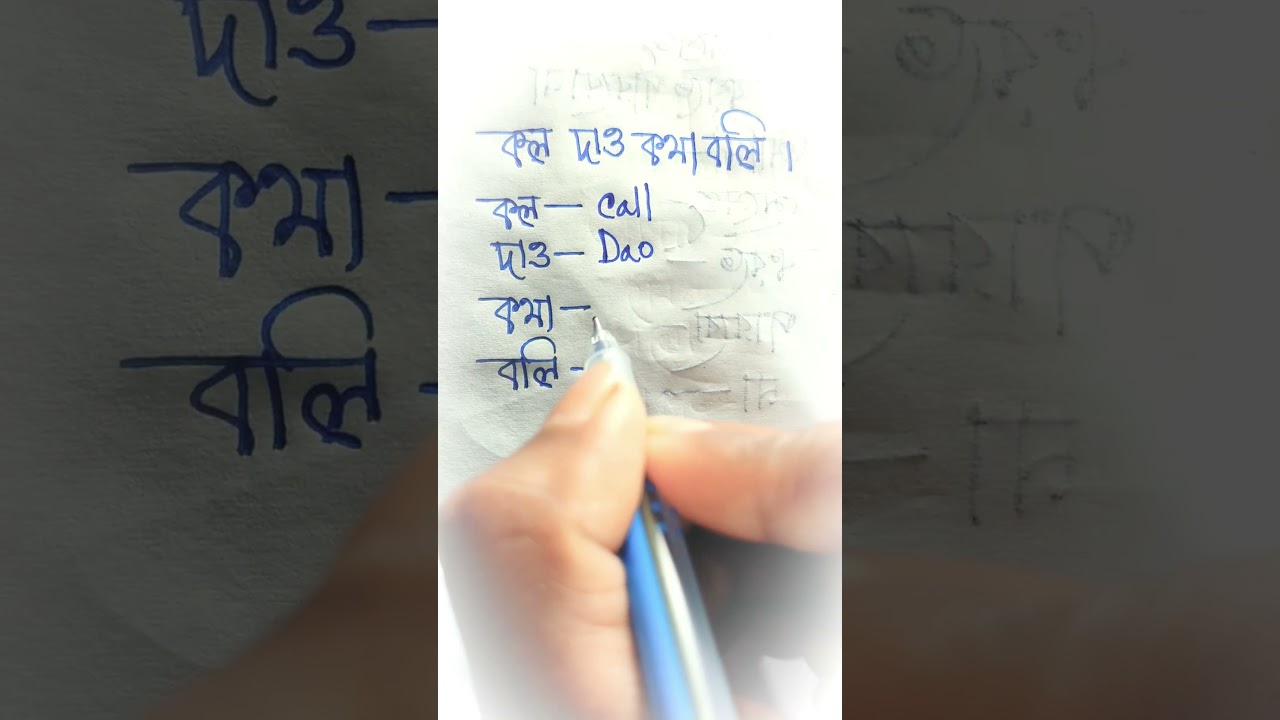 কল দাও কথা বলি ।
কল — Call
দাও — Dao
কথা —
বলি -